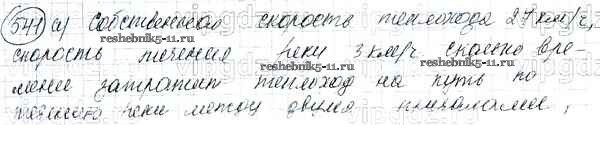 541 а) Собственная скорость теплохода 27 км/ч,
скорость течения реки 3 км/ч. сколько вре-
мени затратит теплоход на путь по
течению реки между двумя причалами,
reshebnik5-11.ru
reshebnik5-11.ru